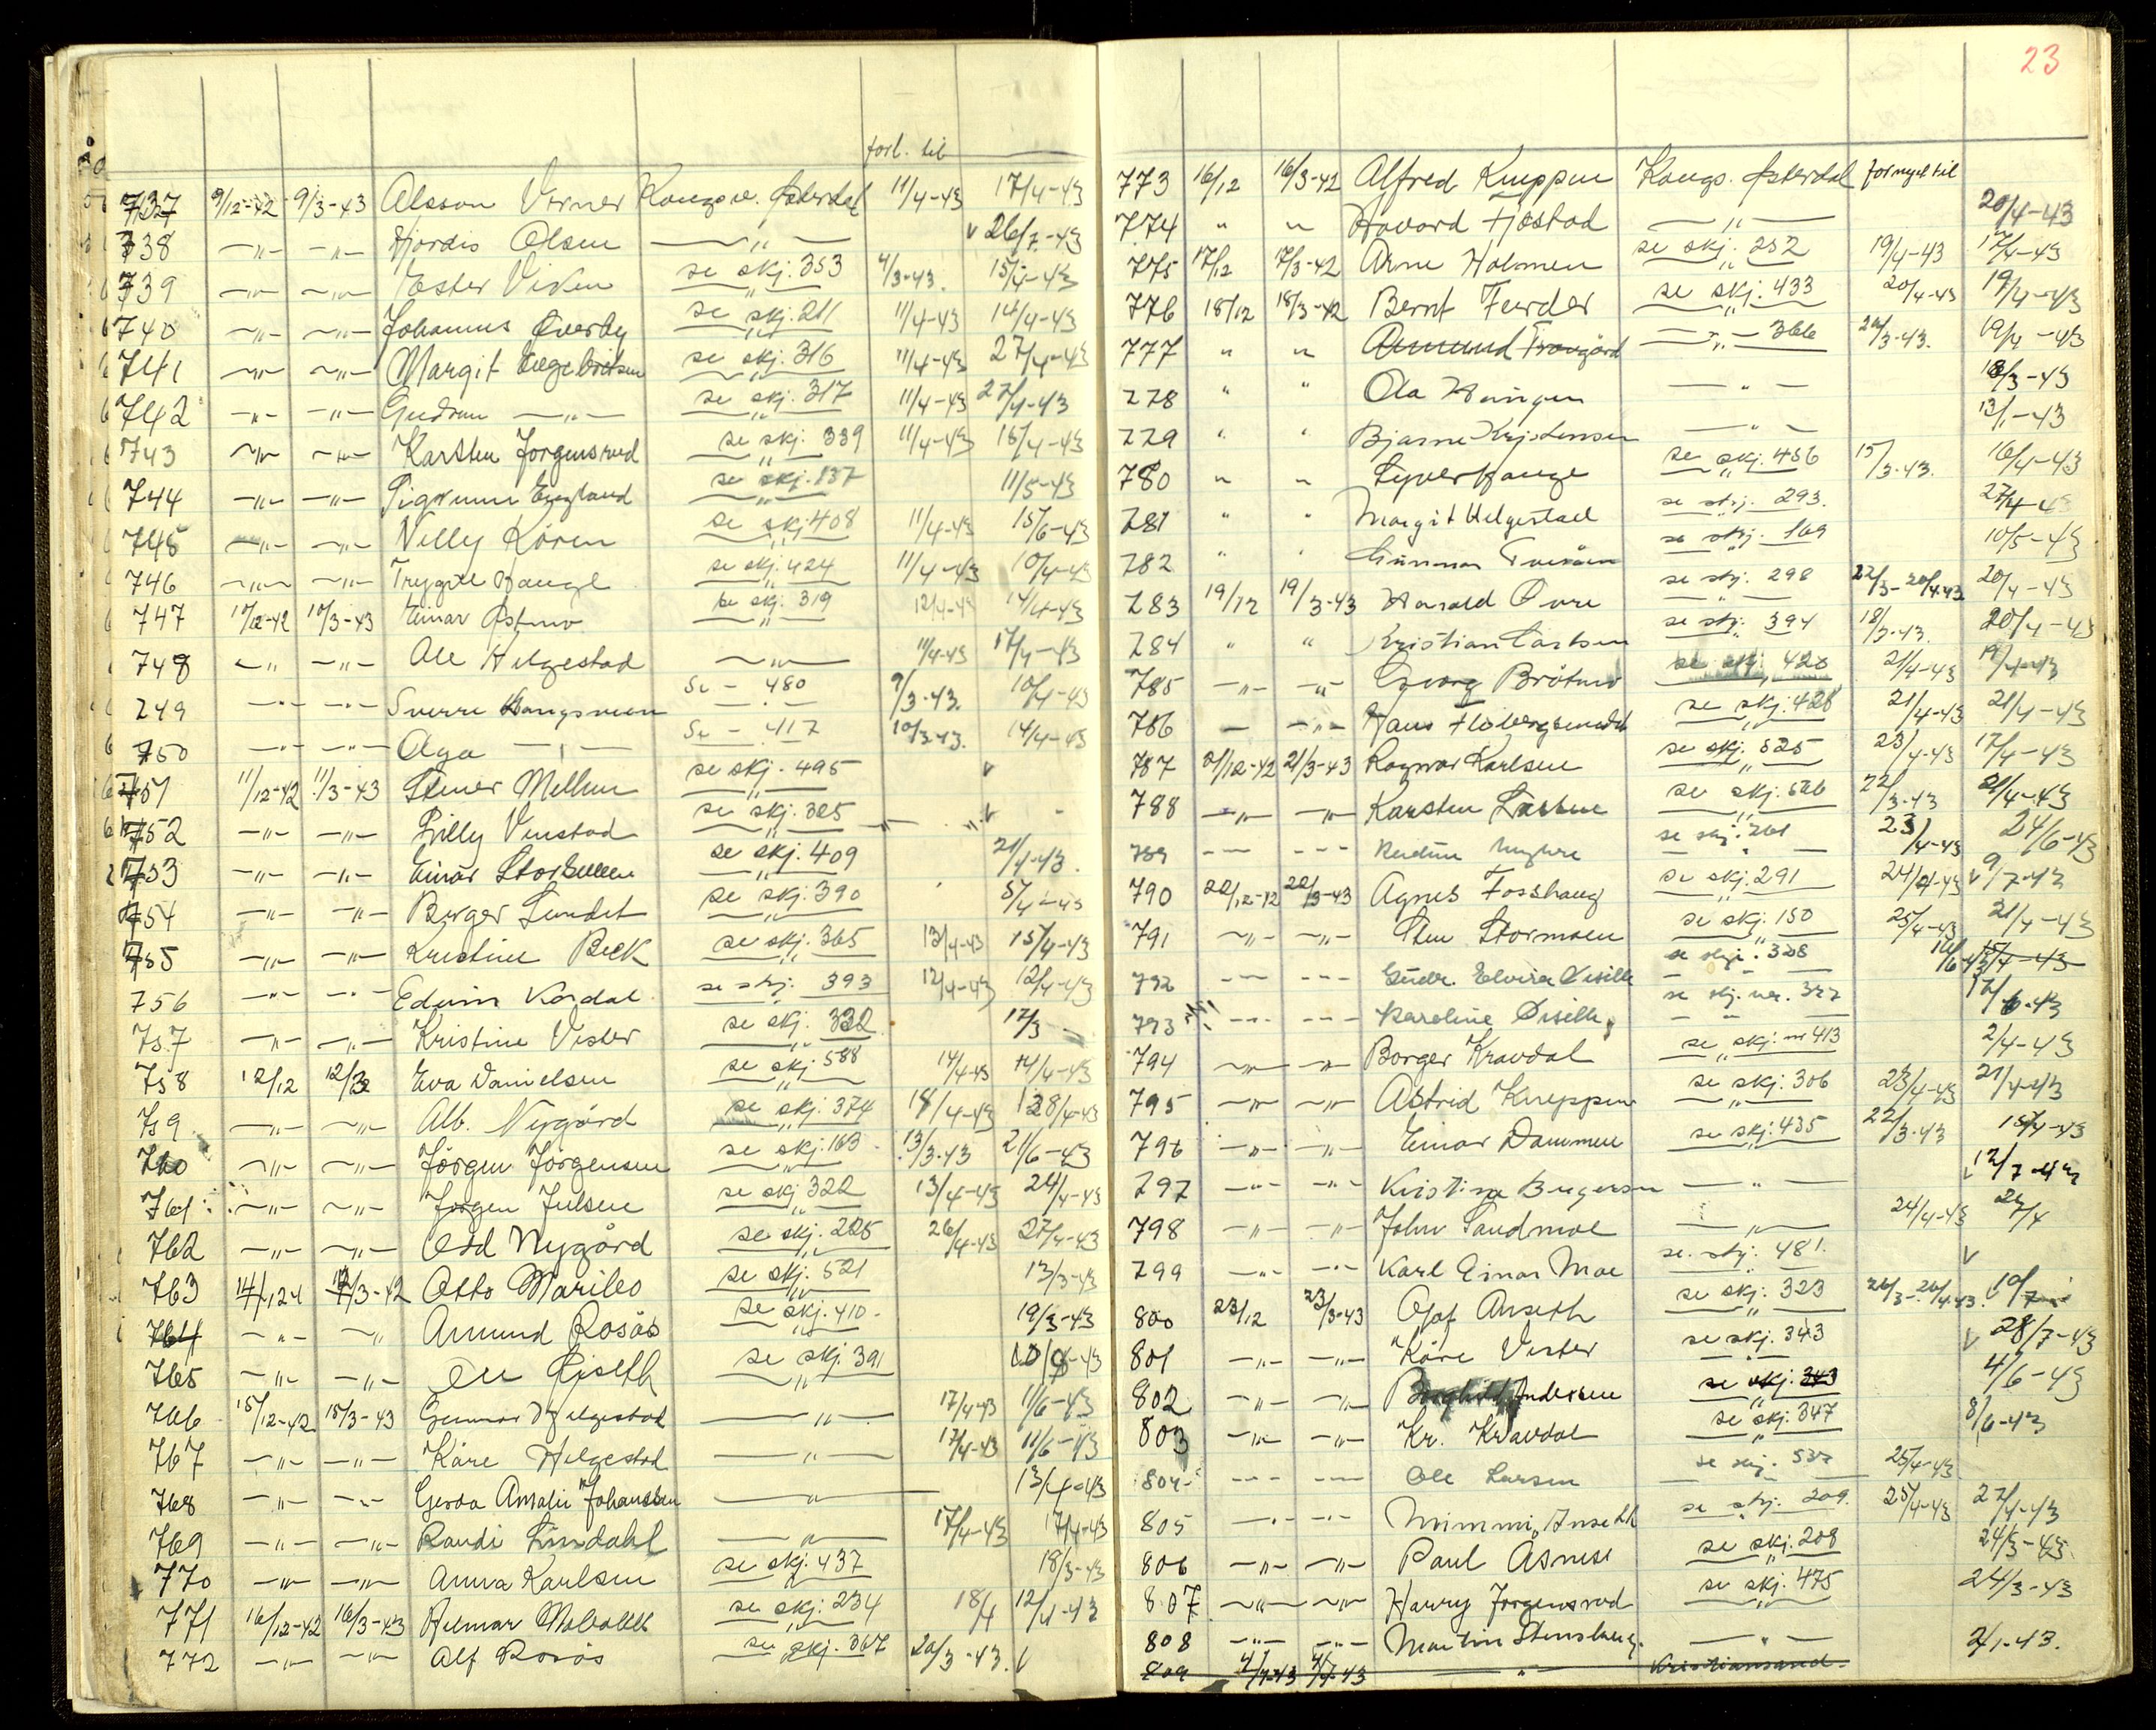 forl. til
737 9/12-42 9/3-43 Olsson Verner Kongsv. Østerdal 11/4-43 17/4-43
738 —"— —"— Hjördis Olsen —"— v 26/7-43
739 —"— —"— Ester Viken se skj. 353 4/3-43. 15/4-43
740 —"— —"— Johannes Överby se skj. 211 11/4-43 14/4-43
741 —"— —"— Margit Engebretsen se skj. 316 11/4-43 27/4-43
742 —"— —"— Gudrun —"— se skj. 317 11/4-43 27/4-43
743 —"— —"— Karsten Jörgensrud se skj. 339 11/4-43 16/4-43
744 —"— —"— Sigrunn se skj. 137 11/5-43
745 —"— —"— Villy Kören se skj 408 11/4-43 15/6-43
746 —"— —"— Trygve Hauge se skj. 424 11/4-43 10/4-43
747 10/12-42 10/3-43 Einar Östmo se skj. 319 12/4-43 14/4-43
748 —"— —"— Ole Helgestad —"— 11/4-43 17/4-43
749 —"— —"— Sverre Se - 480 9/3-43. 10/4-43
750 —"— —"— Aga —"— Se - 417 10/3-43. 14/4-43
751 11/12-42 11/3-43 Stener Mellum se skj. 495 v
752 —"— —"— Lilly Vinstad se skj. 325 —"— v
753 —"— —"— Einar se skj. 409 21/4-43.
754 —"— —"— Borger Lundet se skj. 390 5/4-43
755 —"— —"— Kristine Beck se skj. 365 13/4-43 15/4-43
756 —"— —"— Edvin Kordal se skj. 393 12/4-43 12/4-43
757 —"— —"— Kristine Vester se skj. 332 17/3
758 12/12 12/3 Eva Danielsen se skj. 588 14/4-43 14/4-43
759 —"— —"— Alb. Nygård se skj. 374 18/4-43 28/4-43
760 —"— —"— Jörgen Jörgensen se skj. 163 13/3-43 21/6-43
761 —"— —"— Jörgen Julsen se skj 322 13/4-43 24/4-43
762 —"— —"— Odd Nygård se skj. 225 26/4-43 27/4-43
763 14/12 14/3-42 Otto Marileo se skj. 521 13/3-43
764 —"— —"— Amund Rosås se skj. 410 19/3-43
765 —"— —"— Ole Liseth se skj. 391
766 15/12-42 15/3-43 Gunnar Helgestad —"— 17/4-43 11/6-43
767 —"— —"— Kåre Helgestad —"— 17/4-43 11/6-43
768 —"— —"— Gerda Amalie Johansen —"— 13/4-43
769 —"— —"— Randi Lindahl —"— 17/4-43 17/4-43
770 —"— —"— Anna Karlsen se skj. 437 18/3-43
771 16/12-42 16/3-43 Hilmar se skj. 234 18/4 12/4-43
772 —"— —"— Alf Rosås se skj. 367 20/3-43. v
23
773 16/12 16/3-42 Alfred Knappen Kongs. Østerdal fornyet til
774 " " Håvard Fjøstad —"— 20/4-43
775 17/12 17/3-42 Arne Holmen se skj. 252 19/4-43 17/4-43
776 18/12 18/3-42 Bernt Furder se skj. 433 20/4-43 19/4-43
777 " " Amund Frangård —"— 366 20/3-43. 19/4-43
778 " " Ola Haugen —"— 18/3-43
779 " " Bjarne Kristensen —"— 13/1-43
780 " " Syver Hauge se skj. 456 15/3-43. 16/4-43
781 " " Margit Helgestad se skj. 293. 27/4-4
782 " " Gunnar Tveråen se skj. 169 10/5-43
783 19/12 19/3-43 Harald Övre se skj. 298 22/3-20/4-43 20/4-43
784 " " Kristian Carlsen se skj. 394 18/3-43. 20/4-43
785 —"— —"— Georg Bråtmo se skj. 420 21/4-43 19/4-43
786 — —"— Hans se skj. 428 21/4-43 21/4-43
787 21/12-42 21/3-43 Ragnar Karlsen se skj. 525 23/4-43 17/4-43
788 —"— —"— Karsten se skj. 526 22/3-43 21/4-43
789 --- --- se skj. 261 23/4-43 24/6-43
790 22/12-42 22/3-43 Agnes Fosshaug se skj. 291 24/4-43 v 9/7-43
791 —"— —"— Sten Stormoen se skj. 150 25/4-43 21/4-43
792 --- --- Gudr. Elvira Diselle se skj. 328 16/6-43 15/4-43
793 --- --- Karoline Diselle se skj. nr. 327 12/6-43
794 —"— —"— Borger Kravdal se skj. nr 413 2/4-43
795 —"— —"— Astrid Knappen se skj. 306 23/4-43 21/4-43
796 —"— —"— Einar Dammen se skj. 435 22/3-43 15/4-43
797 —"— —"— Kristine Bergersen —"— v 12/7-43
798 —"— —"— John Sandmoe —"— 24/4-43 24/4
799 —"— —"— Karl Einar Moe se. skj. 481. v
800 23/12 23/3-43 Olaf Anseth se skj. 323 26/3-26/4-43. v 10/7
801 —"— —"— Kåre Vester se skj. 343 v 28/7-43
802 —"— —"— Borghild Andersen se skj. 343 4/6-43
803 —"— —"— Kr. Kravdal se skj. 347 8/6-43
804 --- --- Ole Larsen se skj. 537 25/4-43
805 —"— —"— Mimmi Anseth se skj. 209. 25/4-43 27/4-43
806 —"— —"— Paul Åsnese se skj. 208 24/3-43.
807 —"— —"— Harry Jörgensrud se skj. 475 24/3-43
808 —"— —"— Martin Stensberg. —"— 2/1-43.
809 4/1-43 4/4-43 " Kristiansand.